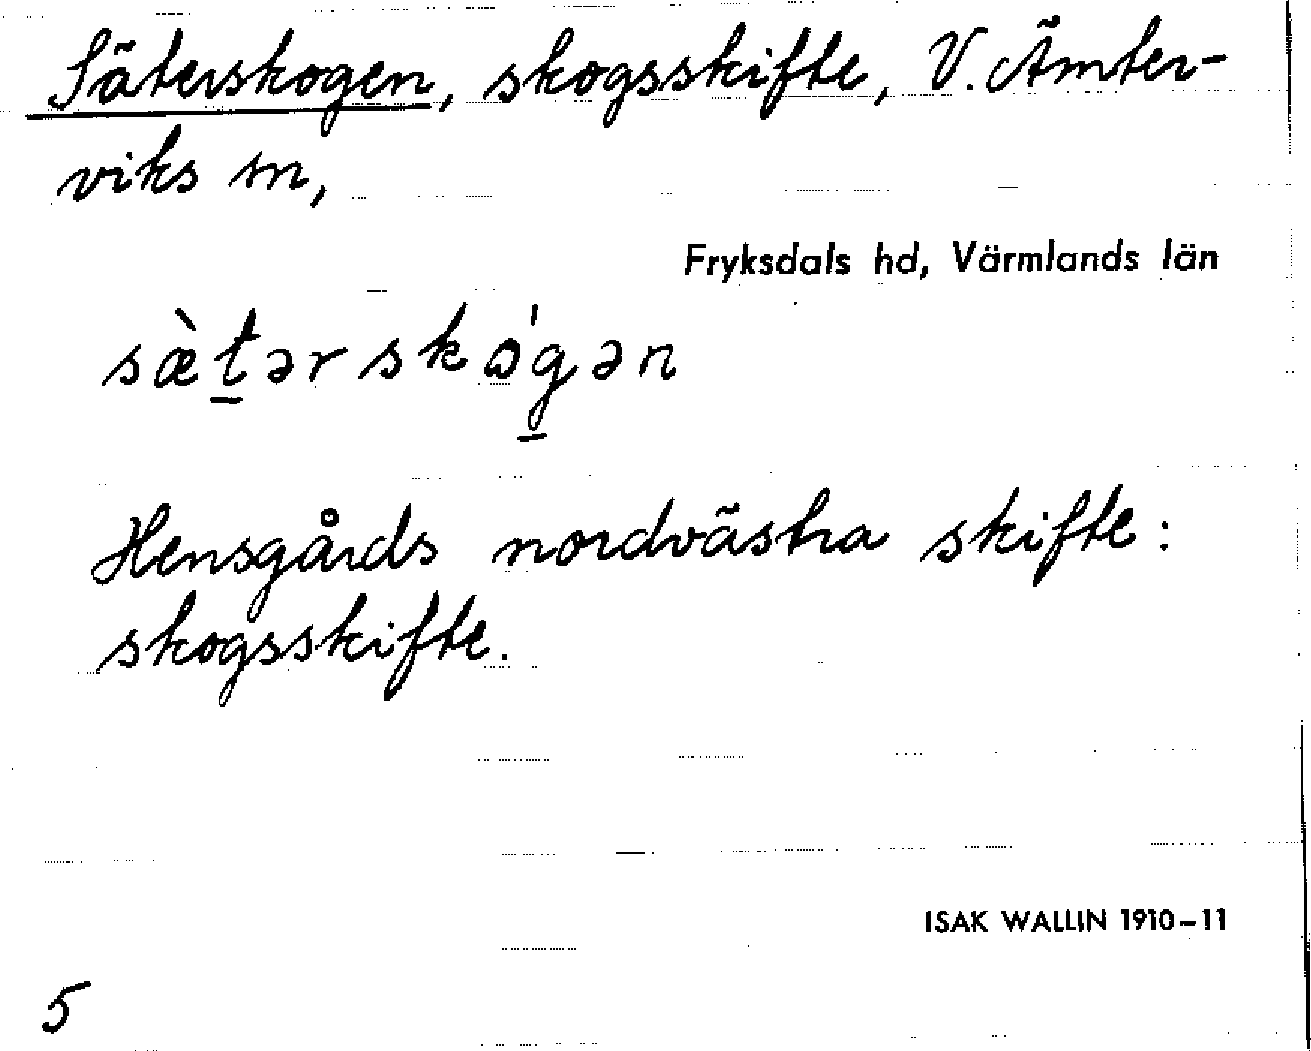 Säterskogen, skogsskifte, V. Ämter-
viks sn,
Fryksdals hd, Värmlands län
sæ̀t̠ərskɷ́g̠ən
Hensgårds nordvästra skifte:
skogsskifte.
ISAK WALLIN 1910–11
5